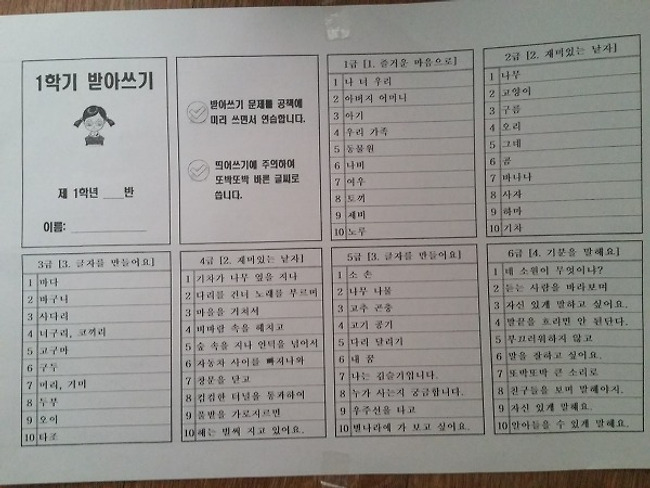 1학기 받아쓰기
제 1학년 ___반
이름: ___________
받아쓰기 문제를 공책에
미리 쓰면서 연습합니다.
띄어쓰기에 주의하여
또박또박 바른 글씨로
씁니다.
1급 [1. 즐거운 마음으로]
1 나 너 우리
2 아버지 어머니
3 아기
4 우리 가족
5 동물원
6 나비
7 여우
8 토끼
9 제비
10 노루
2급 [2. 재미있는 낱자]
1 나무
2 고양이
3 구름
4 오리
5 그네
6 곰
7 바나나
8 사자
9 하마
10 기차
3급 [3. 글자를 만들어요]
1 바다
2 바구니
3 사다리
4 너구리, 코끼리
5 고구마
6 구두
7 머리, 거미
8 두부
9 오이
10 타조
4급 [2. 재미있는 낱자]
1 기차가 나무 옆을 지나
2 다리를 건너 노래를 부르며
3 마을을 거쳐서
4 비바람 속을 헤치고
5 숲 속을 지나 언덕을 넘어서
6 자동차 사이를 빠져나와
7 창문을 닫고
8 컴컴한 터널을 통과하여
9 풀밭을 가로지르면
10 해는 벌써 지고 있어요.
5급 [3. 글자를 만들어요]
1 소 손
2 나무 나물
3 고추 곤충
4 고기 공기
5 다리 달리기
6 내 꿈
7 나는 김슬기입니다.
8 누가 사는지 궁금합니다.
9 우주선을 타고
10 별나라에 가 보고 싶어요.
6급 [4. 기분을 말해요]
1 네 소원이 무엇이니?
2 듣는 사람을 바라보며
3 자신 있게 말하고 싶어요.
4 말끝을 흐리면 안 된단다.
5 부끄러워하지 않고
6 말을 잘하고 싶어요.
7 또박또박 큰 소리로
8 친구들을 보며 말해야지.
9 자신 있게 말해요.
10 알아들을 수 있게 말해요.